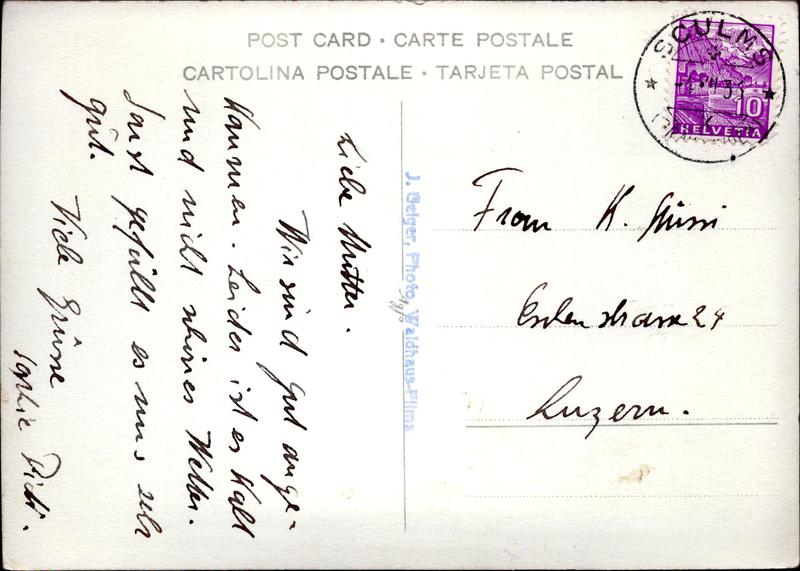 POST CARD · CARTE POSTALE
CARTOLINA POSTALE · TARJETA POSTAL
SCULMS
10
HELVETIA
Liebe Mutter.
Wir sind gut ange-
kommen. Leider ist es kalt
und nicht schönes Wetter.
Sonst gefällt es uns sehr
gut.
Viele Grüsse
Sophie
J. Geiger, Photo, Waldhaus-Flims
K.
24
Luzern.